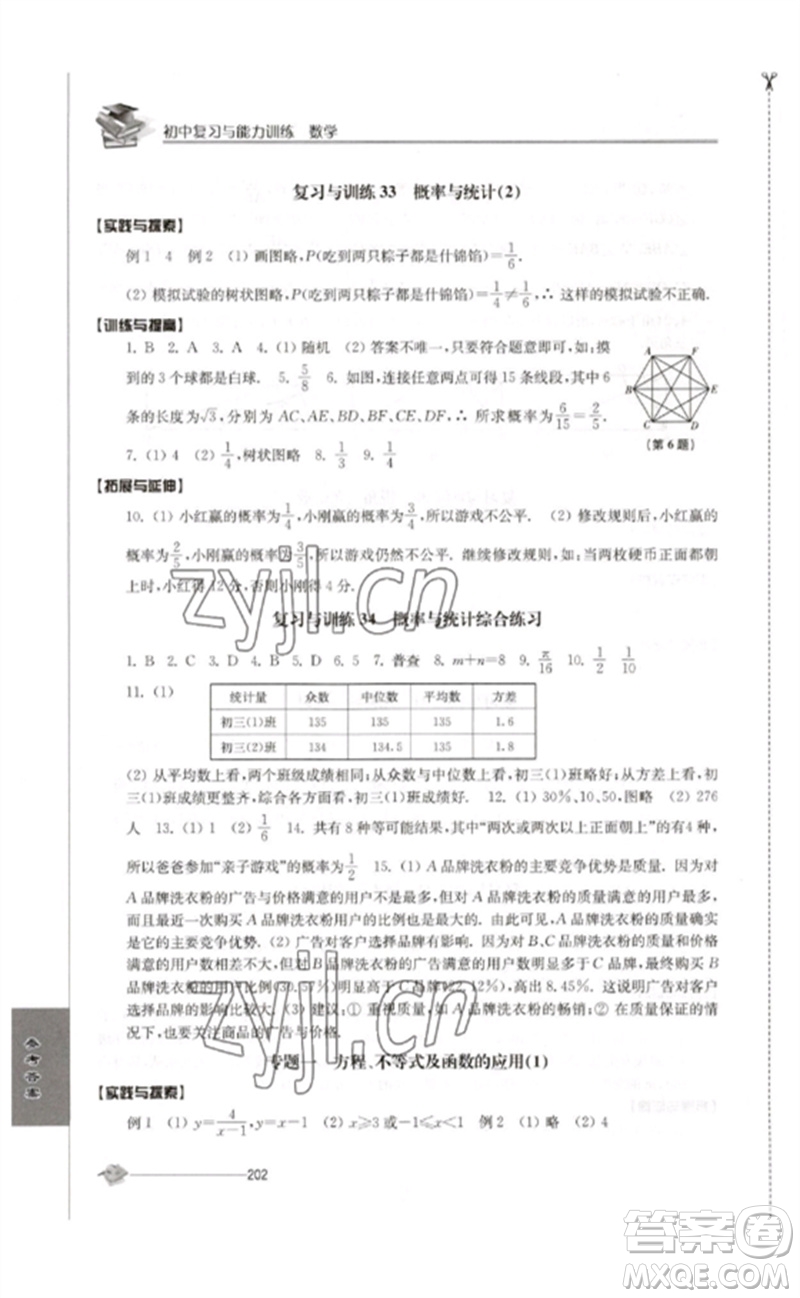 初中复习与能力训练 数学
复习与训练 33 概率与统计(2)
【实践与探索】
例 1 4 例 2 (1) 画图略,P(吃到两只粽子都是什锦馅)=1/6.
(2) 模拟试验的树状图略,P(吃到两只粽子都是什锦馅)=1/4≠1/6,∴ 这样的模拟试验不正确.
【训练与提高】
1. B 2. A 3. A 4. (1) 随机 (2) 答案不唯一,只要符合题意即可,如:摸
到的 3 个球都是白球. 5. 5/8 6. 如图,连接任意两点可得 15 条线段,其中 6
条的长度为√3,分别为 AC、AE、BD、BF、CE、DF,∴ 所求概率为6/15=2/5.
A F B E C D
(第 6 题)
7. (1) 4 (2) 1/4,树状图略 8. 1/3 9. 1/4
【拓展与延伸】
10. (1) 小红赢的概率为1/4,小刚赢的概率为3/4,所以游戏不公平. (2) 修改规则后,小红赢的
概率为2/5,小刚赢的概率为3/5,所以游戏仍然不公平. 继续修改规则,如:当两枚硬币正面都朝
上时,小红得12分,否则小刚得 4 分.
复习与训练 34 概率与统计综合练习
1. B 2. C 3. B 4. B 5. D 6. 5 7. 普查 8. m+n=8 9. π/16 10. 1/2 1/10
11. (1)
统计量 众数 中位数 平均数 方差
初三(1)班 135 135 135 1.6
初三(2)班 134 134.5 135 1.8
(2) 从平均数上看,两个班级成绩相同;从众数与中位数上看,初三(1)班略好;从方差上看,初三
(1)班成绩更整齐,综合各方面,初三(1)班成绩好. 12. (1) 30%、10、50,图略 (2) 276
人 13. (1) 1 (2) 1/6 14. 共有 8 种等可能结果,其中“两次或两次以上正面朝上”的有4 种,
所以爸爸参加“亲子游戏”的概率为1/2 15. (1) A 品牌洗衣粉的质量满意的用户最多,
而且最近一次购买 A 品牌洗衣粉用户的比例也是最大的. 由此可见,A 品牌洗衣粉的质量确实
是它的主要竞争优势. (2) 广告对客户选择品牌有影响. 因为 B、C 品牌洗衣粉的质量和价格
满意的用户数相差不大,但对 B 品牌洗衣粉的广告满意的用户数明显多于 C 品牌,且购买 B 品
牌洗衣粉的用户比例(30.57%)明显高于 C 品牌(22.12%),高出 8.45%. 这说明广告对客户选择
品牌的影响比较大. (3) 建议:① 重视质量,如 A 品牌洗衣粉的畅销;② 在质量保证的情
况下,也要关注商品的广告与价格.
专题一 方程、不等式及函数的应用(1)
【实践与探索】
例 1 (1) y=4/(x-1),y=x-1 (2) x≥3或-1≤x<1 例 2 (1) 略 (2) 4
参考答案
202
zyjl.cn
zyjl.cn
答案卷
MXQE.COM